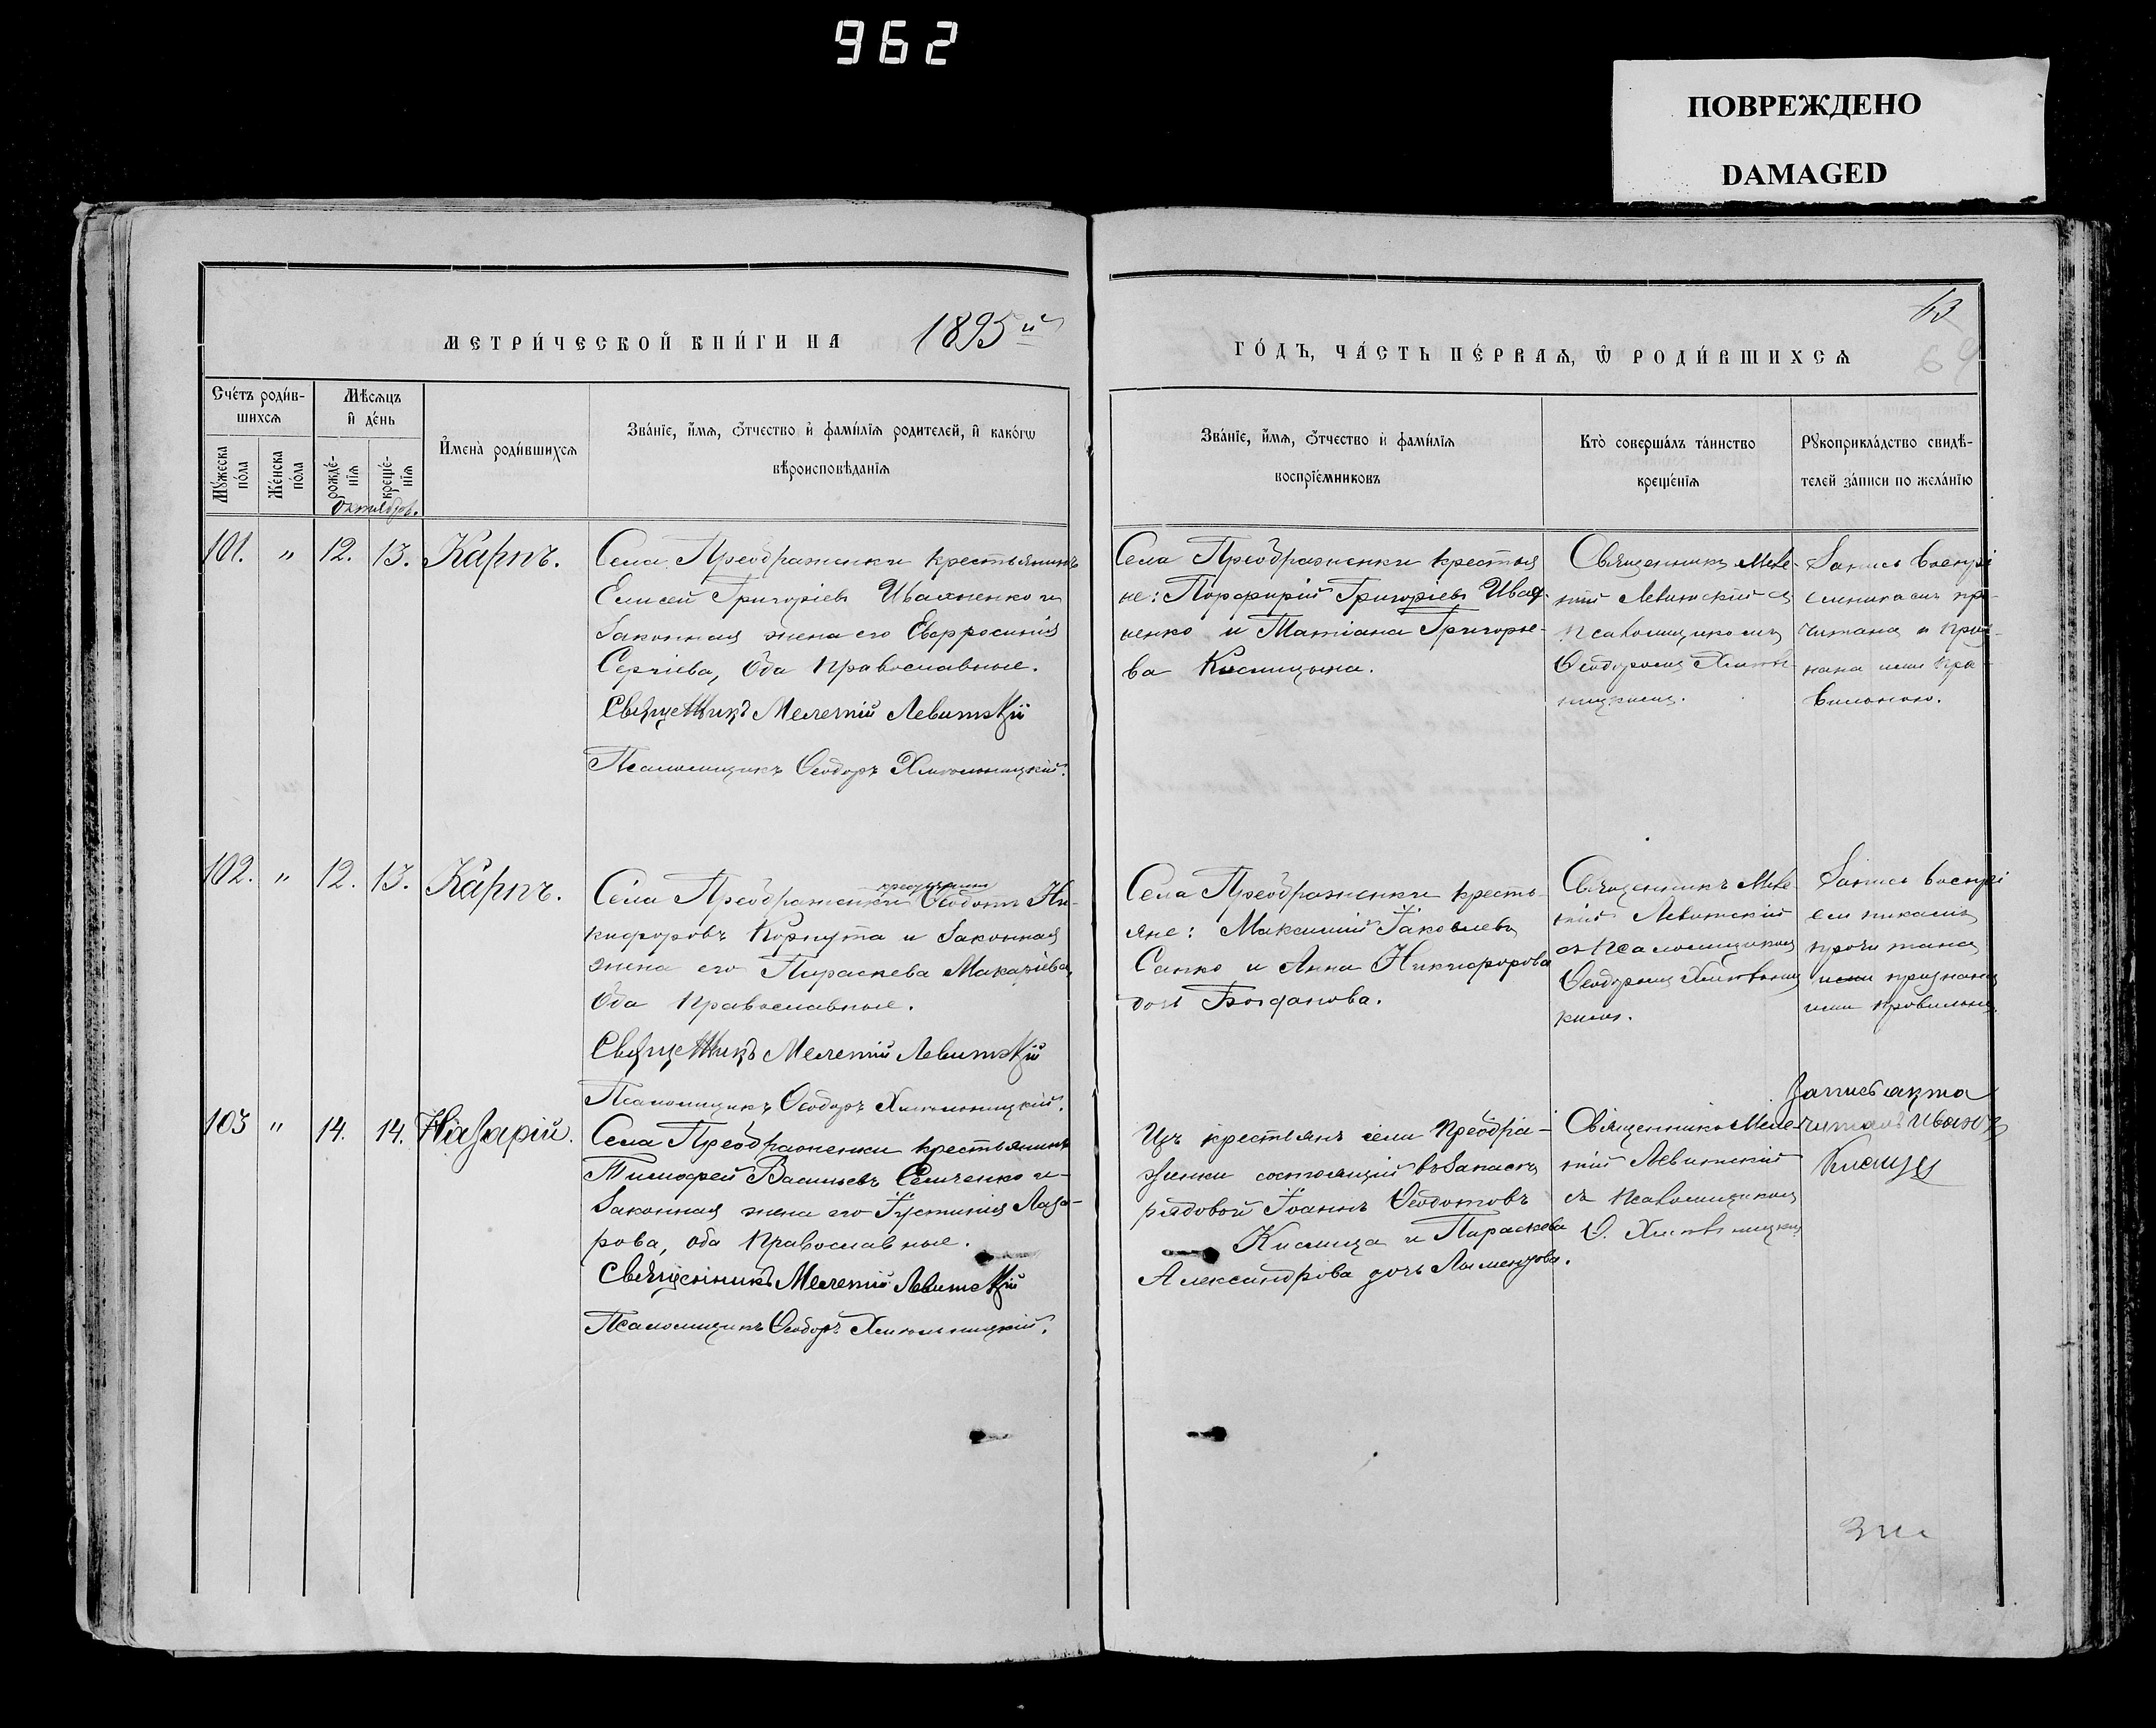 962
ПОВРЕЖДЕНО
DAMAGED
МЕТРИ́ЧЕСКОЙ КНИ́ГИ НА 1895й
ГО́ДЪ, ЧА́СТЬ ПЕ́РВАѦ, Ѡ РОДИ́ВШИХСѦ
63
69
Сче́тъ роди́в-
шихсѧ
Мѣсѧцъ
и҆ де́нь
И҆мена̀ роди́вшихсѧ
Зва́нїе, и҆́мѧ, ѻ҆́тчество и҆ фамы́лїѧ родителей, и҆ како́гѡ
вѣроисповѣ́данїѧ
Мꙋ́жеска
по́ла
Же́нска
по́ла
рожде́-
нїѧ
креще́-
нїѧ
Октября.
Зва́нїе, и҆́мѧ, ѻ҆́тчество и҆ фамы́лїѧ
воспрїе́мниковъ
Кто̀ соверша́лъ та́инство
креще́нїѧ
Рꙋкоприкла́дство свидѣ́-
телей за́писи по жела́нїю
101. " 12. 13. Карпъ.
Села Преображенки крестьянинъ
Елисей Григоріевъ Ивахненко и
законная жена его Евфросинія
Сергіева, оба православные.
Священникъ Мелетій Левитскій
Псаломщикъ Ѳеодоръ Хмѣльницкій.
Села Преображенки крестья
не: Порфирій Григоріевъ Ивах-
ненко и Татіана Григорье-
ва Кислицына.
Священникъ Меле-
тій Левитскій съ
псаломщикомъ
Ѳеодоромъ Хмѣль-
ницкимъ.
Запись воспрі
емникамъ про-
читана и приз-
нана ими пра-
вильною.
102. " 12. 13. Карпъ.
крестьянинъ
Села Преображенки Ѳеодотъ Ни-
кифоровъ Корнута и законная
жена его Параскева Макаріева,
оба православные.
Священникъ Мелетій Левитскій
Псаломщикъ Ѳеодоръ Хмѣльницкій.
Села Преображенки кресть-
яне: Максимъ Іаковлевъ
Санко и Анна Никифорова
дочь Богданова.
Священникъ Меле-
тій Левитскій
съ псаломщикомъ
Ѳеодоромъ Хмѣльниц
кимъ.
Запись воспрі
емникамъ
прочитана
признана
ими правильно.
103 " 14. 14. Назарій.
Села Преображенки крестьянинъ
Тимофей Васильевъ Семченко и
законная жена его Іустинія Лаза-
рова, оба православные.
Священникъ Мелетій Левитскій
Псаломщикъ Ѳеодоръ Хмѣльницкій.
Изъ крестьянъ села Преобра-
женки состоящій въ запасѣ
рядовой Іоаннъ Ѳеодотовъ
Кислица и Параскева
Александрова дочь
Священникъ Меле-
тій Левитскій
съ псаломщикомъ
Ѳ. Хмѣльницким
Запись акта
читалъ Иванъ
Кислица